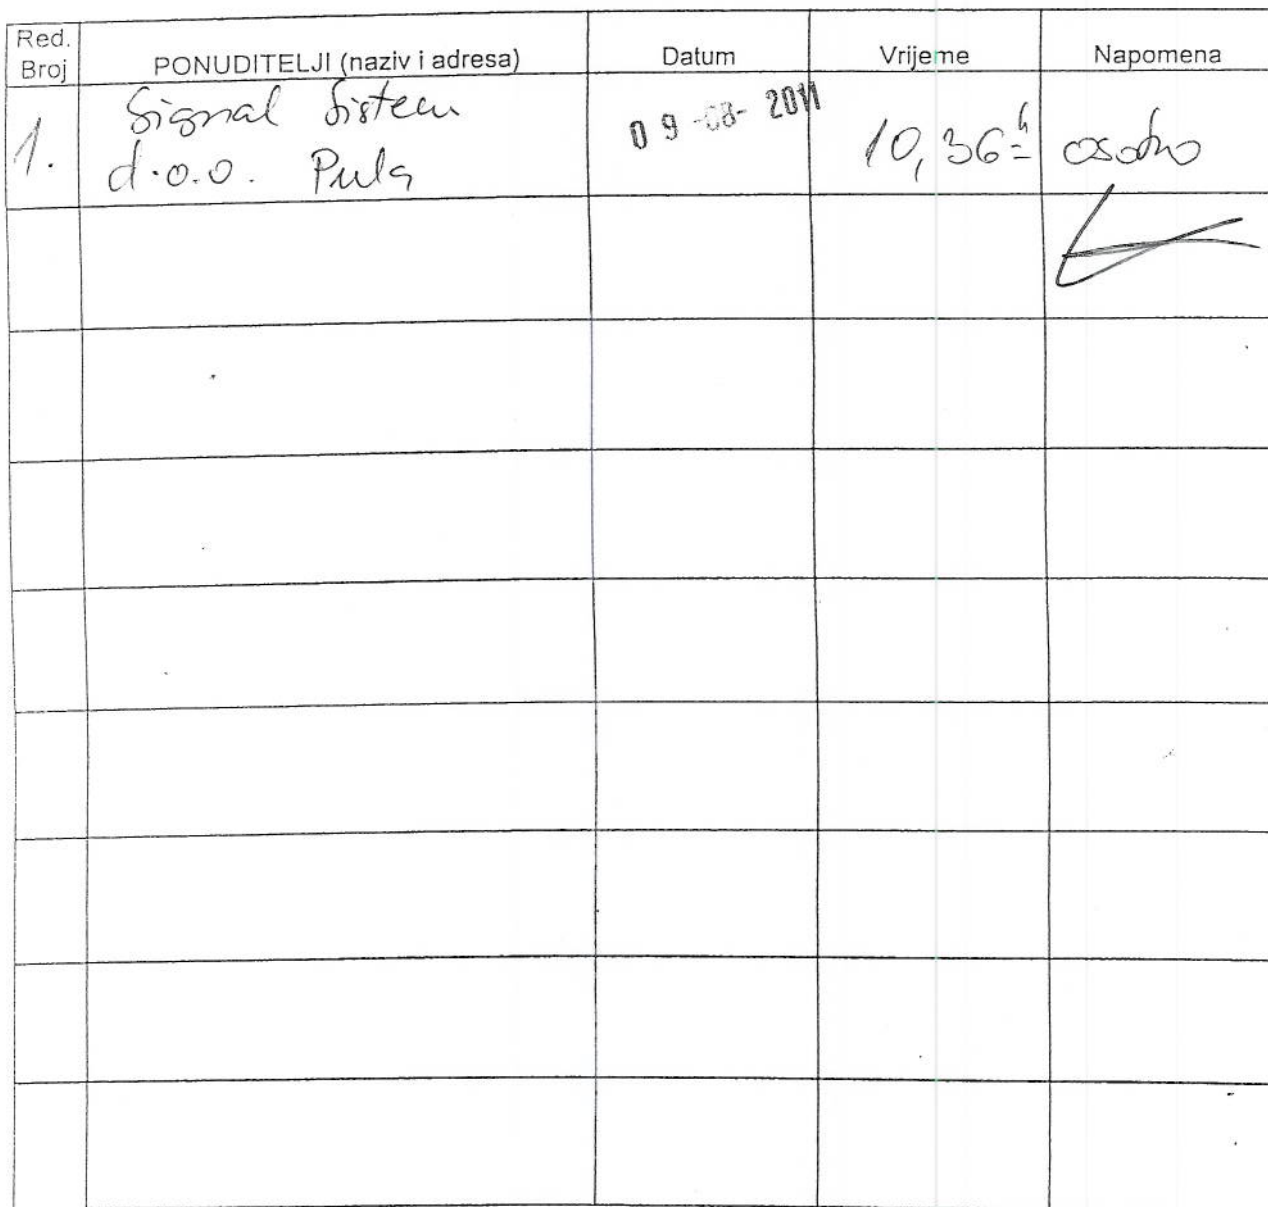 Red. Broj PONUDITELJI (naziv i adresa) Datum Vrijeme Napomena
1. Signal Sistem d.o.o. Pula 09-08-2011 10,36 h osobno